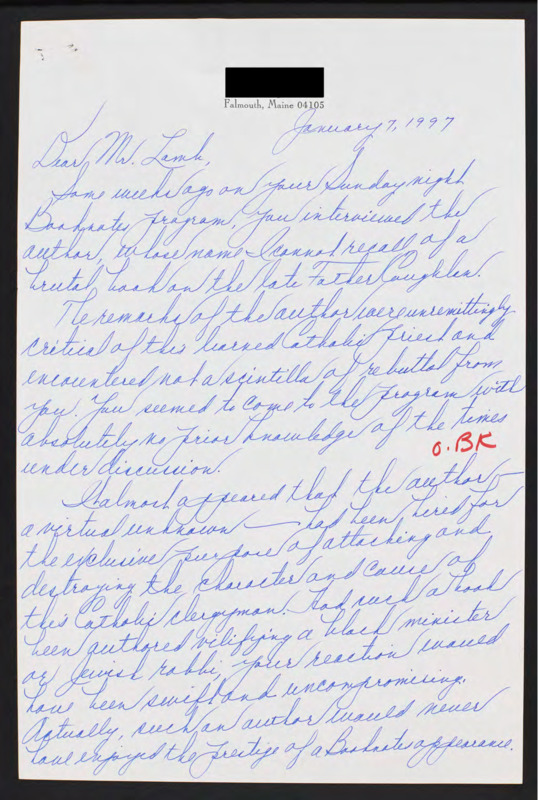 Falmouth, Maine 04105
January 7, 1997
Dear Mr. Lamb,
Some weeks ago on your Sunday night
Booknotes program, you interviewed the
author, whose name I cannot recall of a
brutal book on the late Father Coughlin.
The remarks of the author were unremittingly
critical of this learned Catholic Priest and
encountered not a scintilla of rebuttal from
you. You seemed to come to the program with
absolutely no prior knowledge of the times
O.BK
under discussion.
It almost appeared that the author —
a virtual unknown — had been hired for
the exclusive purpose of attacking and
destroying the character and cause of
this Catholic clergyman. Had such a book
been authored vilifying a black minister
or Jewish rabbi, your reaction would
have been swift and uncompromising.
Actually, such an author would never
have enjoyed the prestige of a Booknotes appearance.